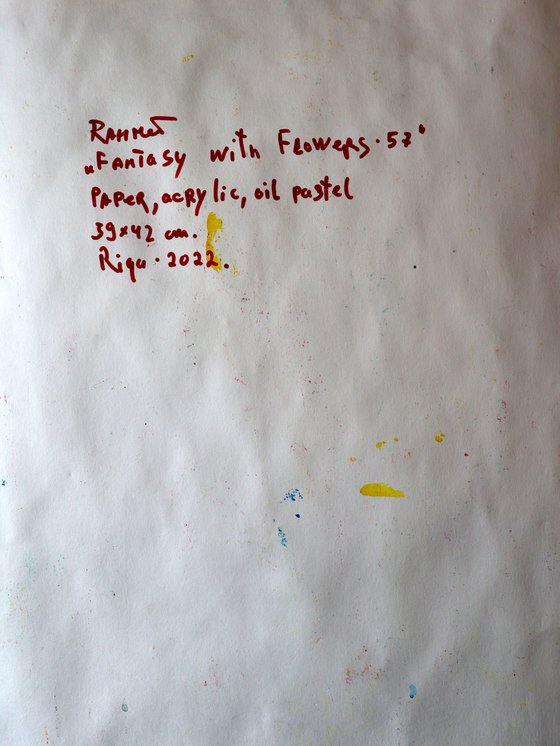 Rahmet
„Fantasy with Flowers · 57“
Paper, acrylic, oil pastel
39x42 cm.
Riga · 2022.